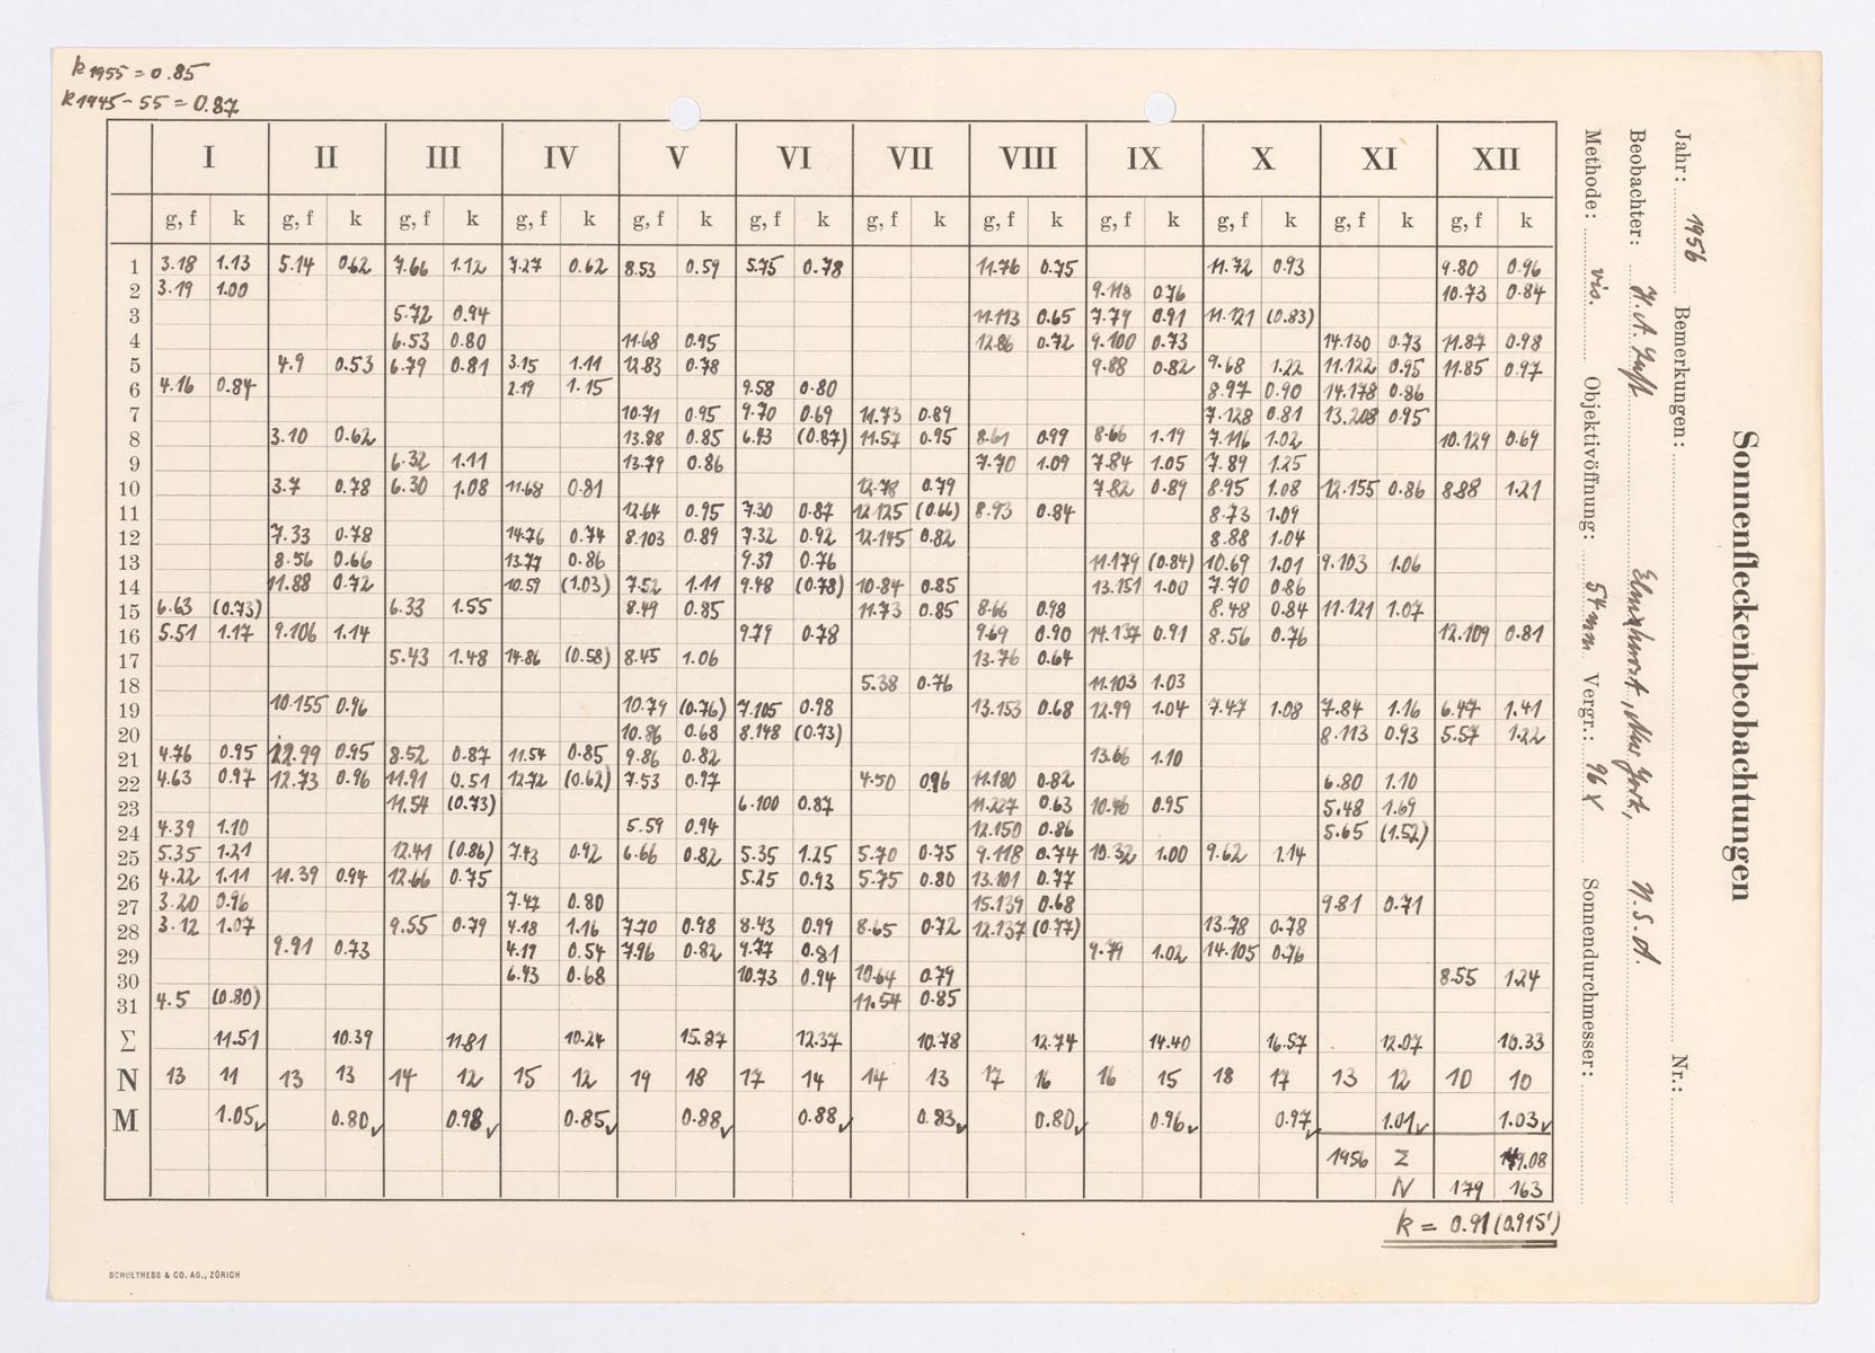 k 1955 = 0.85
k 1945-55 = 0.87
Sonnenfleckenbeobachtungen
Jahr: 1956 Bemerkungen: Nr.:
Beobachter: H. A. Luft Elmhurst, New York, U.S.A.
Methode: vis. Objektivöffnung: 54mm Vergr.: 96 X Sonnendurchmesser:
I II III IV V VI VII VIII IX X XI XII
g, f k g, f k g, f k g, f k g, f k g, f k g, f k g, f k g, f k g, f k g, f k g, f k
1 3.18 1.13 5.14 0.62 7.66 1.12 7.27 0.62 8.53 0.59 5.75 0.78 11.76 0.75 11.72 0.93 9.80 0.96
2 3.19 1.00 9.118 0.76 10.73 0.84
3 5.72 0.94 11.113 0.65 7.79 0.91 11.121 (0.83)
4 6.53 0.80 11.68 0.95 12.86 0.72 9.100 0.73 14.130 0.73 11.87 0.98
5 4.9 0.53 6.79 0.81 3.15 1.11 12.83 0.78 9.88 0.82 9.68 1.22 11.122 0.95 11.85 0.97
6 4.16 0.84 2.19 1.15 9.58 0.80 8.97 0.90 14.178 0.86
7 10.71 0.95 9.70 0.69 11.73 0.89 7.128 0.81 13.208 0.95
8 3.10 0.62 13.88 0.85 6.43 (0.87) 11.57 0.95 8.61 0.99 8.66 1.19 7.116 1.02 10.129 0.69
9 6.32 1.11 13.79 0.86 7.70 1.09 7.84 1.05 7.89 1.25
10 3.7 0.78 6.30 1.08 11.68 0.81 12.78 0.79 7.82 0.89 8.95 1.08 12.155 0.86 8.88 1.21
11 12.64 0.95 7.30 0.87 12.125 (0.66) 8.93 0.84 8.73 1.09
12 7.33 0.78 14.76 0.74 8.103 0.89 7.32 0.92 12.145 0.82 8.88 1.04
13 8.56 0.66 13.77 0.86 9.37 0.76 11.179 (0.84) 10.69 1.01 9.103 1.06
14 11.88 0.72 10.59 (1.03) 7.52 1.11 9.48 (0.78) 10.84 0.85 13.151 1.00 7.70 0.86
15 6.63 (0.73) 6.33 1.55 8.49 0.85 11.73 0.85 8.66 0.98 8.48 0.84 11.121 1.07
16 5.51 1.17 9.106 1.14 9.79 0.78 9.69 0.90 14.137 0.91 8.56 0.76 12.109 0.81
17 5.43 1.48 14.86 (0.58) 8.45 1.06 13.76 0.64
18 5.38 0.76 11.103 1.03
19 10.155 0.96 10.79 (0.76) 7.105 0.98 13.153 0.68 12.99 1.04 7.47 1.08 7.84 1.16 6.47 1.41
20 10.86 0.68 8.148 (0.73) 8.113 0.93 5.57 1.22
21 4.76 0.95 12.99 0.95 8.52 0.87 11.54 0.85 9.86 0.82 13.66 1.10
22 4.63 0.97 12.73 0.96 11.91 0.51 12.72 (0.62) 7.53 0.97 4.50 0.96 11.180 0.82 6.80 1.10
23 11.54 (0.73) 6.100 0.87 11.227 0.63 10.46 0.95 5.48 1.69
24 4.39 1.10 5.59 0.94 12.150 0.86 5.65 (1.52)
25 5.35 1.21 12.41 (0.86) 7.43 0.92 6.66 0.82 5.35 1.25 5.70 0.75 9.118 0.74 10.32 1.00 9.62 1.14
26 4.22 1.11 11.39 0.94 12.66 0.75 5.25 0.93 5.75 0.80 13.101 0.77
27 3.20 0.96 7.47 0.80 15.139 0.68 9.81 0.71
28 3.12 1.07 9.55 0.79 4.18 1.16 7.70 0.98 8.43 0.99 8.65 0.72 12.137 (0.77) 13.78 0.78
29 9.91 0.73 4.19 0.54 7.96 0.82 9.77 0.81 9.79 1.02 14.105 0.76
30 6.43 0.68 10.73 0.94 10.64 0.79 8.55 1.24
31 4.5 (0.80) 11.54 0.85
Σ 11.51 10.39 11.81 10.24 15.87 12.37 10.78 12.74 14.40 16.57 12.07 10.33
N 13 11 13 13 14 12 15 12 19 18 17 14 14 13 17 16 16 15 18 17 13 12 10 10
M 1.05 0.80 0.98 0.85 0.88 0.88 0.83 0.80 0.96 0.97 1.01 1.03
1956 Σ 149.08
N 179 163
k = 0.91 (0.915')
SCHULTHESS & CO. AG., ZÜRICH